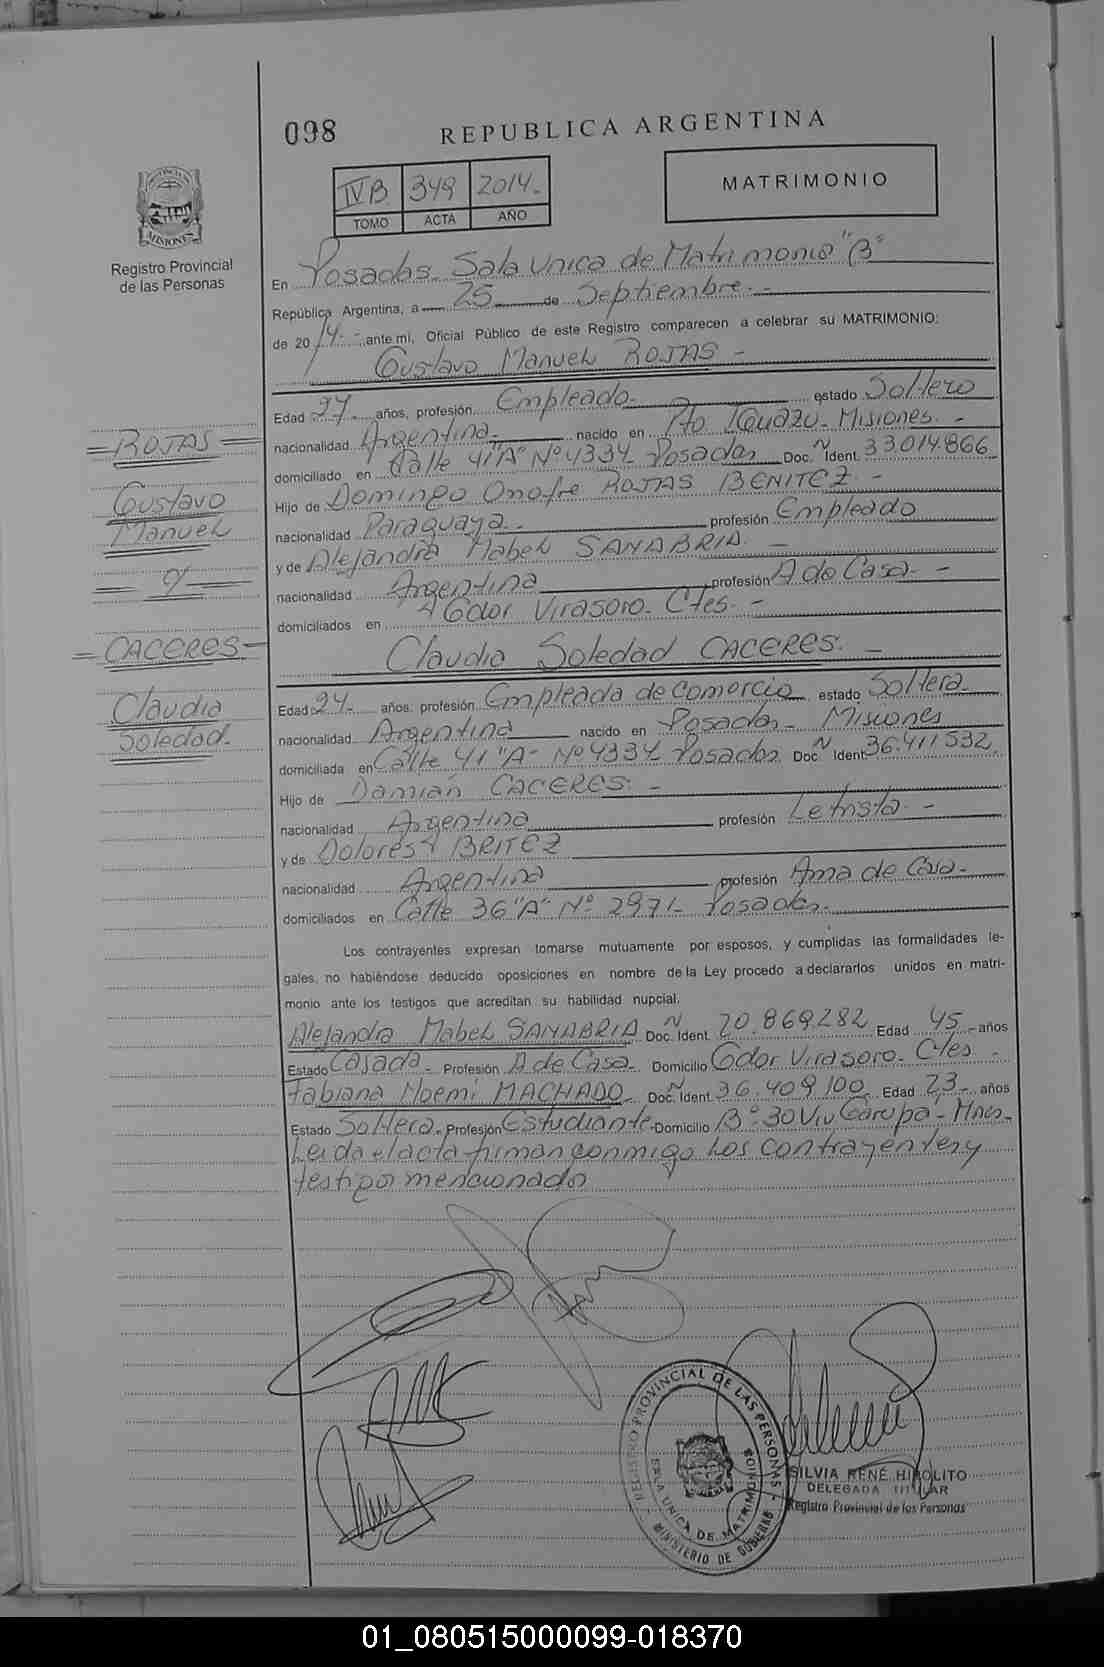 098
REPUBLICA ARGENTINA
IVB 349 2014.-
TOMO ACTA AÑO
MATRIMONIO
PROVINCIA DE
MISIONES
Registro Provincial
de las Personas
En Posadas. Sala Unica de Matrimonio "B"
República Argentina, a 25 de Septiembre.-
de 20 14.- ante mi, Oficial Público de este Registro comparecen a celebrar su MATRIMONIO:
Gustavo Manuel ROJAS -
Edad 27.- años, profesión Empleado.- estado Soltero
nacionalidad Argentina.- nacido en Pto IGuazu. Misiones. -
domiciliado en Calle 41"A" Nº 4334 Posadas Doc. N Ident. 33.014.866
Hijo de Domingo Onofre ROJAS BENITEZ. -
nacionalidad Paraguaya.- profesión Empleado
y de Alejandra Mabel SANABRIA. -
nacionalidad Argentina profesión A de Casa. -
domiciliados en Gdor Virasoro. Ctes. -
Claudia Soledad CACERES. -
Edad 24.- años, profesión Empleada de Comercio estado Soltera.
nacionalidad Argentina nacido en Posadas - Misiones
domiciliada en Calle 41"A" Nº 4334 Posadas. Doc. N Ident. 36.411.532.
Hijo de Damián CACERES. -
nacionalidad Argentina profesión Letrista. -
y de Dolores BRITEZ
nacionalidad Argentina profesión Ama de Casa.-
domiciliados en Calle 36"A" Nº 2971- Posadas.-
Los contrayentes expresan tomarse mutuamente por esposos, y cumplidas las formalidades le-
gales, no habiéndose deducido oposiciones en nombre de la Ley procedo a declararlos unidos en matri-
monio ante los testigos que acreditan su habilidad nupcial.
Alejandra Mabel SANABRIA Doc. N Ident. 20.869.282 Edad 45.- años
Estado Casada.- Profesión A de Casa. Domicilio Gdor Virasoro. Ctes -
Fabiana Noemi MACHADO.- Doc. N Ident. 36.409.100 Edad 23.- años
Estado Soltera.- Profesión Estudiante.- Domicilio Bº 30 Viv Garupa - Mnes.-
Leida el acta firman conmigo Los contrayentes y
testigos mencionado
= ROJAS =
Gustavo
Manuel
= y =
= CACERES =
Claudia
Soledad.
REGISTRO PROVINCIAL DE LAS PERSONAS
SALA UNICA DE MATRIMONIOS
MINISTERIO DE GOBIERNO
SILVIA RENÉ HIPOLITO
DELEGADA TITULAR
Registro Provincial de las Personas
01_080515000099-018370